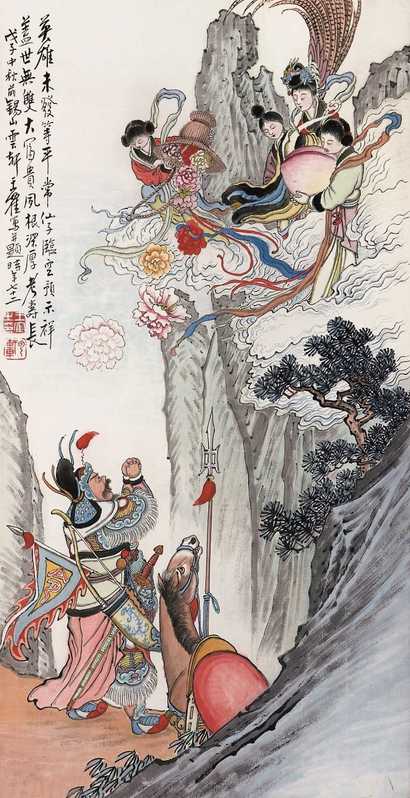 英雄未發等平常仙子臨空預示祥
蓋世無雙大富貴夙根深厚考壽長
戊子中秋前錫山雲軒王寫并題時年七十二